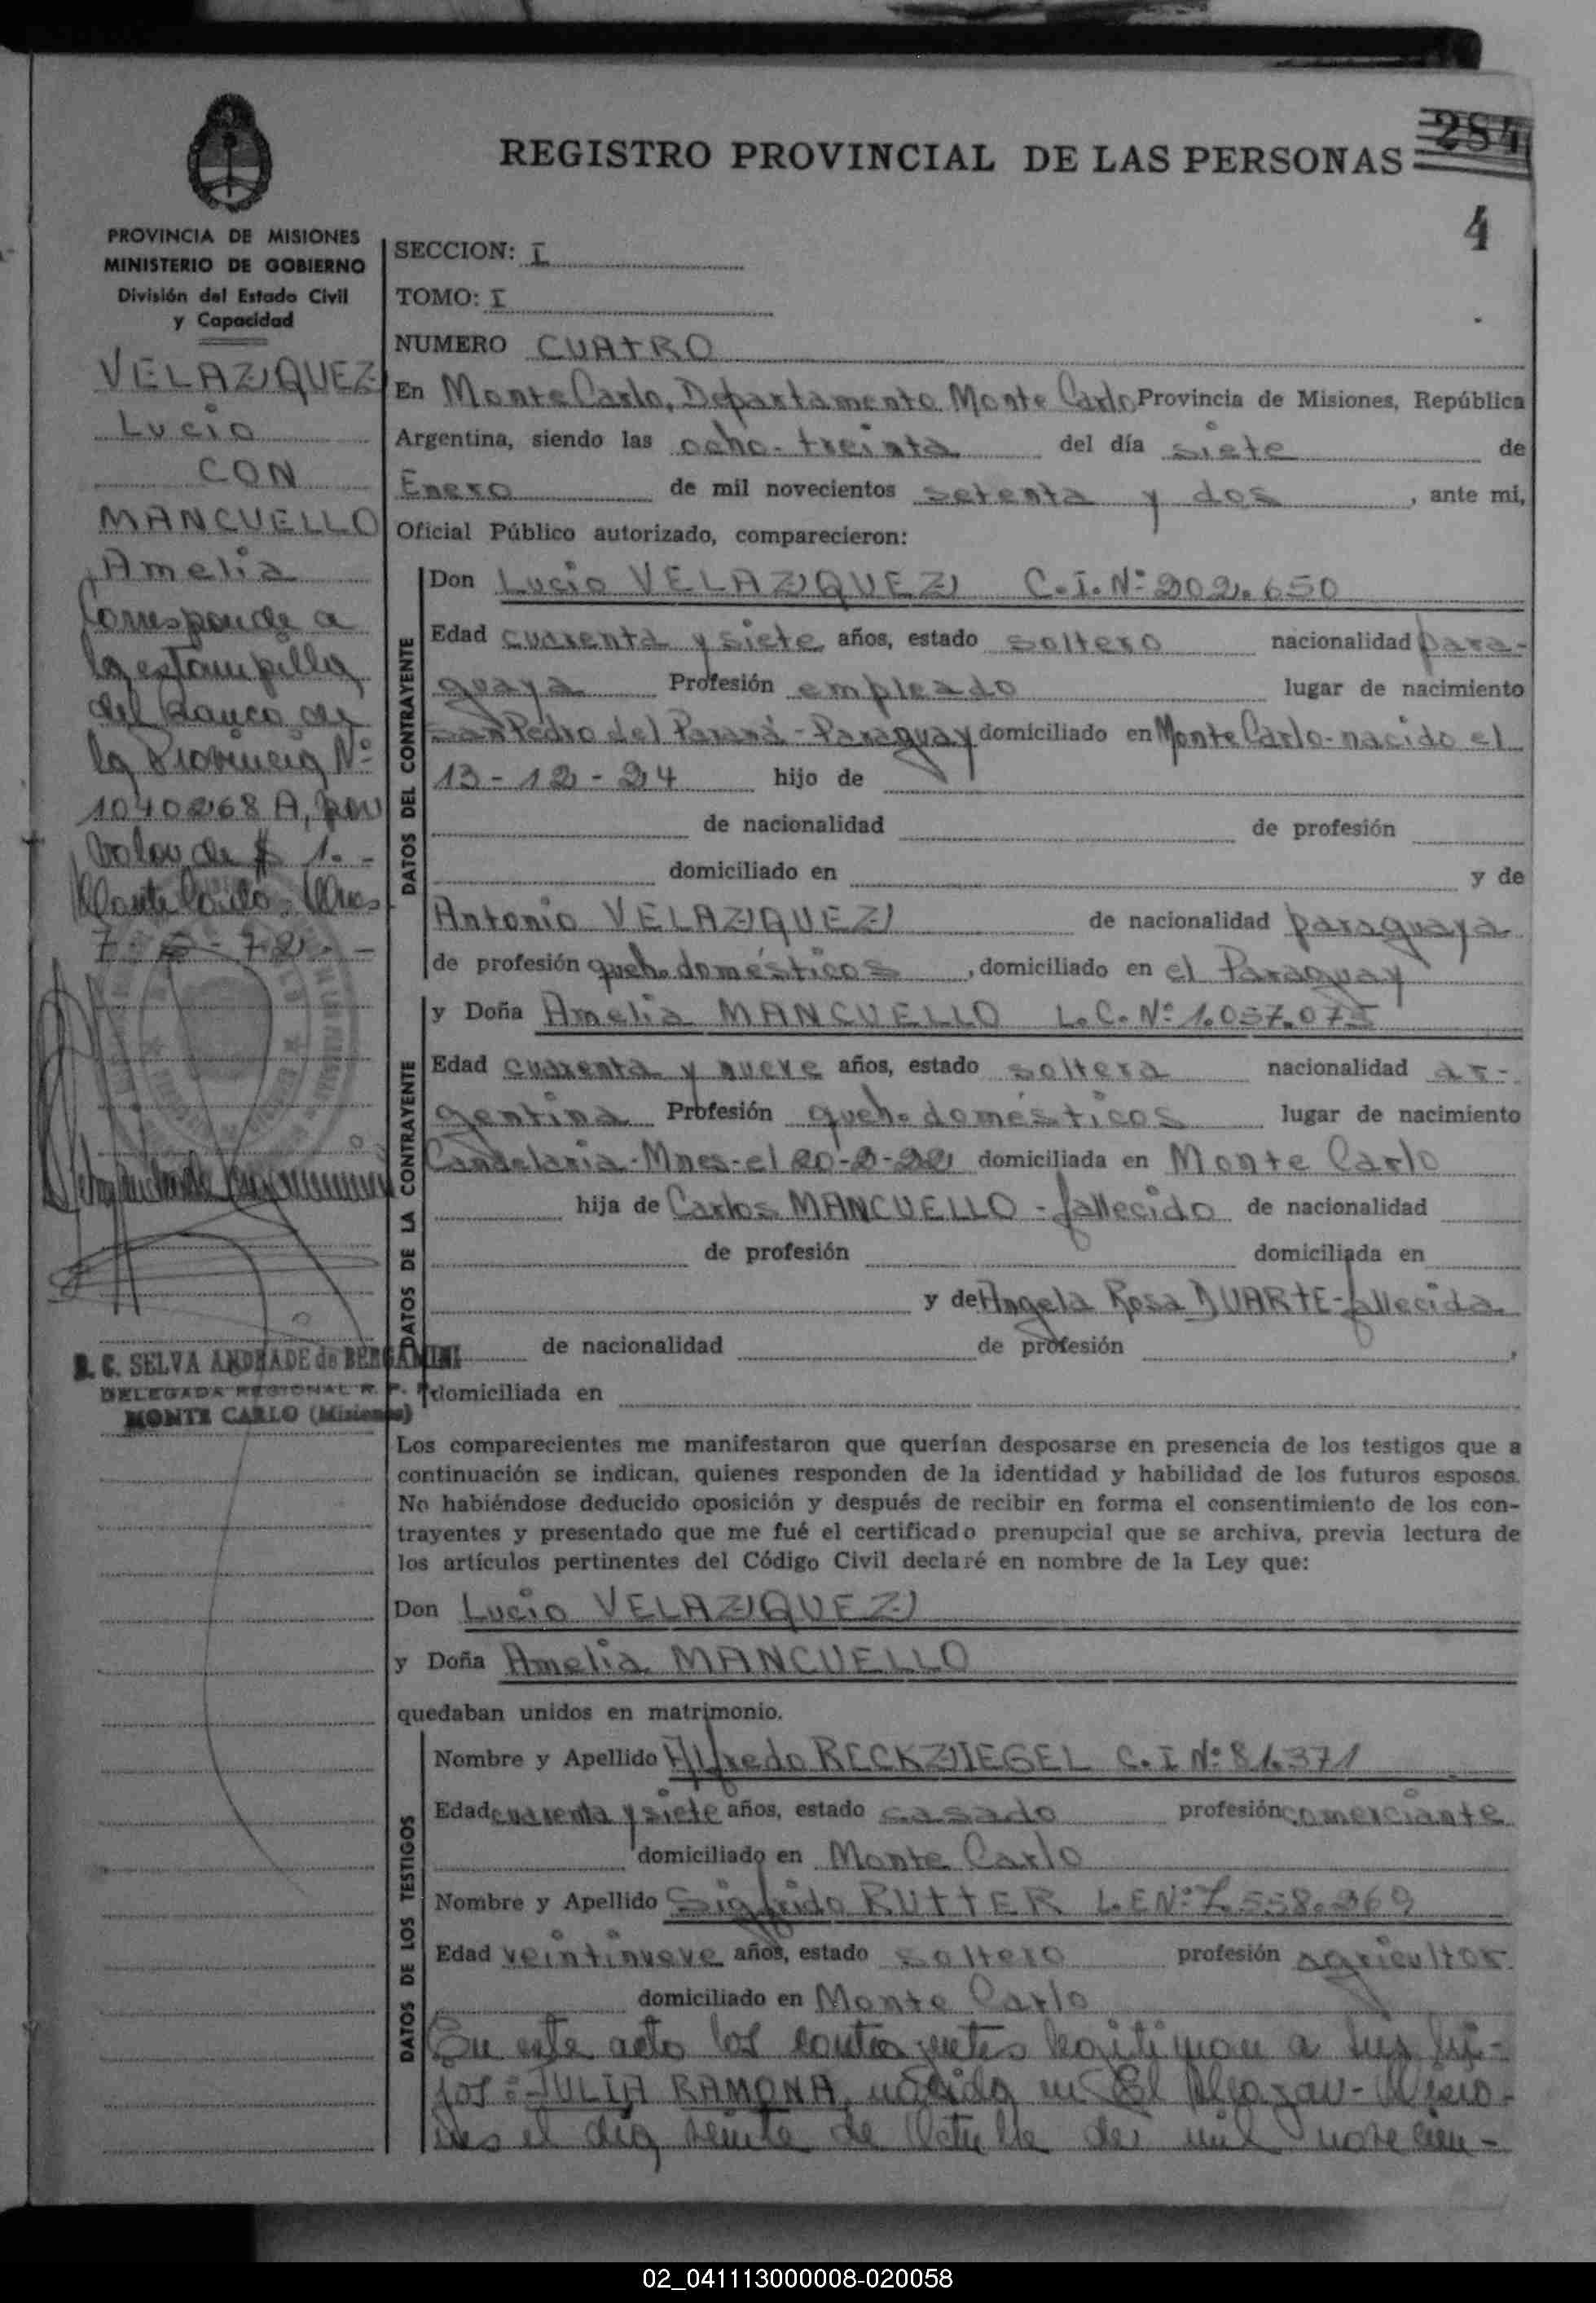 REGISTRO PROVINCIAL DE LAS PERSONAS
284
4
PROVINCIA DE MISIONES
MINISTERIO DE GOBIERNO
División del Estado Civil
y Capacidad
VELAZQUEZ
Lucio
CON
MANCUELLO
Amelia
Corresponde a
la estampilla
del Banco de
la Provincia Nº
1040268 A, por
valor de $ 1.-
Monte Carlo, Mnes
S. C. SELVA ANDRADE de BERGAMINI
DELEGADA REGIONAL R. P. P.
MONTE CARLO (Misiones)
SECCION: I
TOMO: I
NUMERO CUATRO
En Monte Carlo, Departamento Monte Carlo Provincia de Misiones, República
Argentina, siendo las ocho-treinta del día siete de
Enero de mil novecientos setenta y dos, ante mí,
Oficial Público autorizado, comparecieron:
DATOS DEL CONTRAYENTE
Don Lucio VELAZQUEZ C.I. Nº 202.650
Edad cuarenta y siete años, estado soltero nacionalidad para-
guaya Profesión empleado lugar de nacimiento
San Pedro del Paraná-Paraguay domiciliado en Monte Carlo-nacido el
13-12-24 hijo de
de nacionalidad de profesión
domiciliado en y de
Antonia VELAZQUEZ de nacionalidad paraguaya
de profesión queh. domésticos, domiciliado en el Paraguay
DATOS DE LA CONTRAYENTE
y Doña Amelia MANCUELLO L.C. Nº 1.057.075
Edad cuarenta y nueve años, estado soltera nacionalidad ar-
gentina Profesión queh. domésticos lugar de nacimiento
Candelaria-Mnes-el 20-2-22 domiciliada en Monte Carlo
hija de Carlos MANCUELLO - fallecido de nacionalidad
de profesión domiciliada en
y de Angela Rosa DUARTE-fallecida
de nacionalidad de profesión ,
domiciliada en
Los comparecientes me manifestaron que querían desposarse en presencia de los testigos que a
continuación se indican, quienes responden de la identidad y habilidad de los futuros esposos.
No habiéndose deducido oposición y después de recibir en forma el consentimiento de los con-
trayentes y presentado que me fué el certificado prenupcial que se archiva, previa lectura de
los artículos pertinentes del Código Civil declaré en nombre de la Ley que:
Don Lucio VELAZQUEZ
y Doña Amelia MANCUELLO
quedaban unidos en matrimonio.
DATOS DE LOS TESTIGOS
Nombre y Apellido Alfredo RECKZIEGEL C.I Nº 81.371
Edad cuarenta y siete años, estado casado profesión comerciante
domiciliado en Monte Carlo
Nombre y Apellido Sigfrido RUTTER L.E Nº 7.558.269
Edad veintinueve años, estado soltero profesión agricultor
domiciliado en Monte Carlo
En este acto los contrayentes legitiman a sus hi-
jos: JULIA RAMONA, nacida en El Alcazar-Misio-
nes el día veinte de Octubre de mil novecien-
02_041113000008-020058